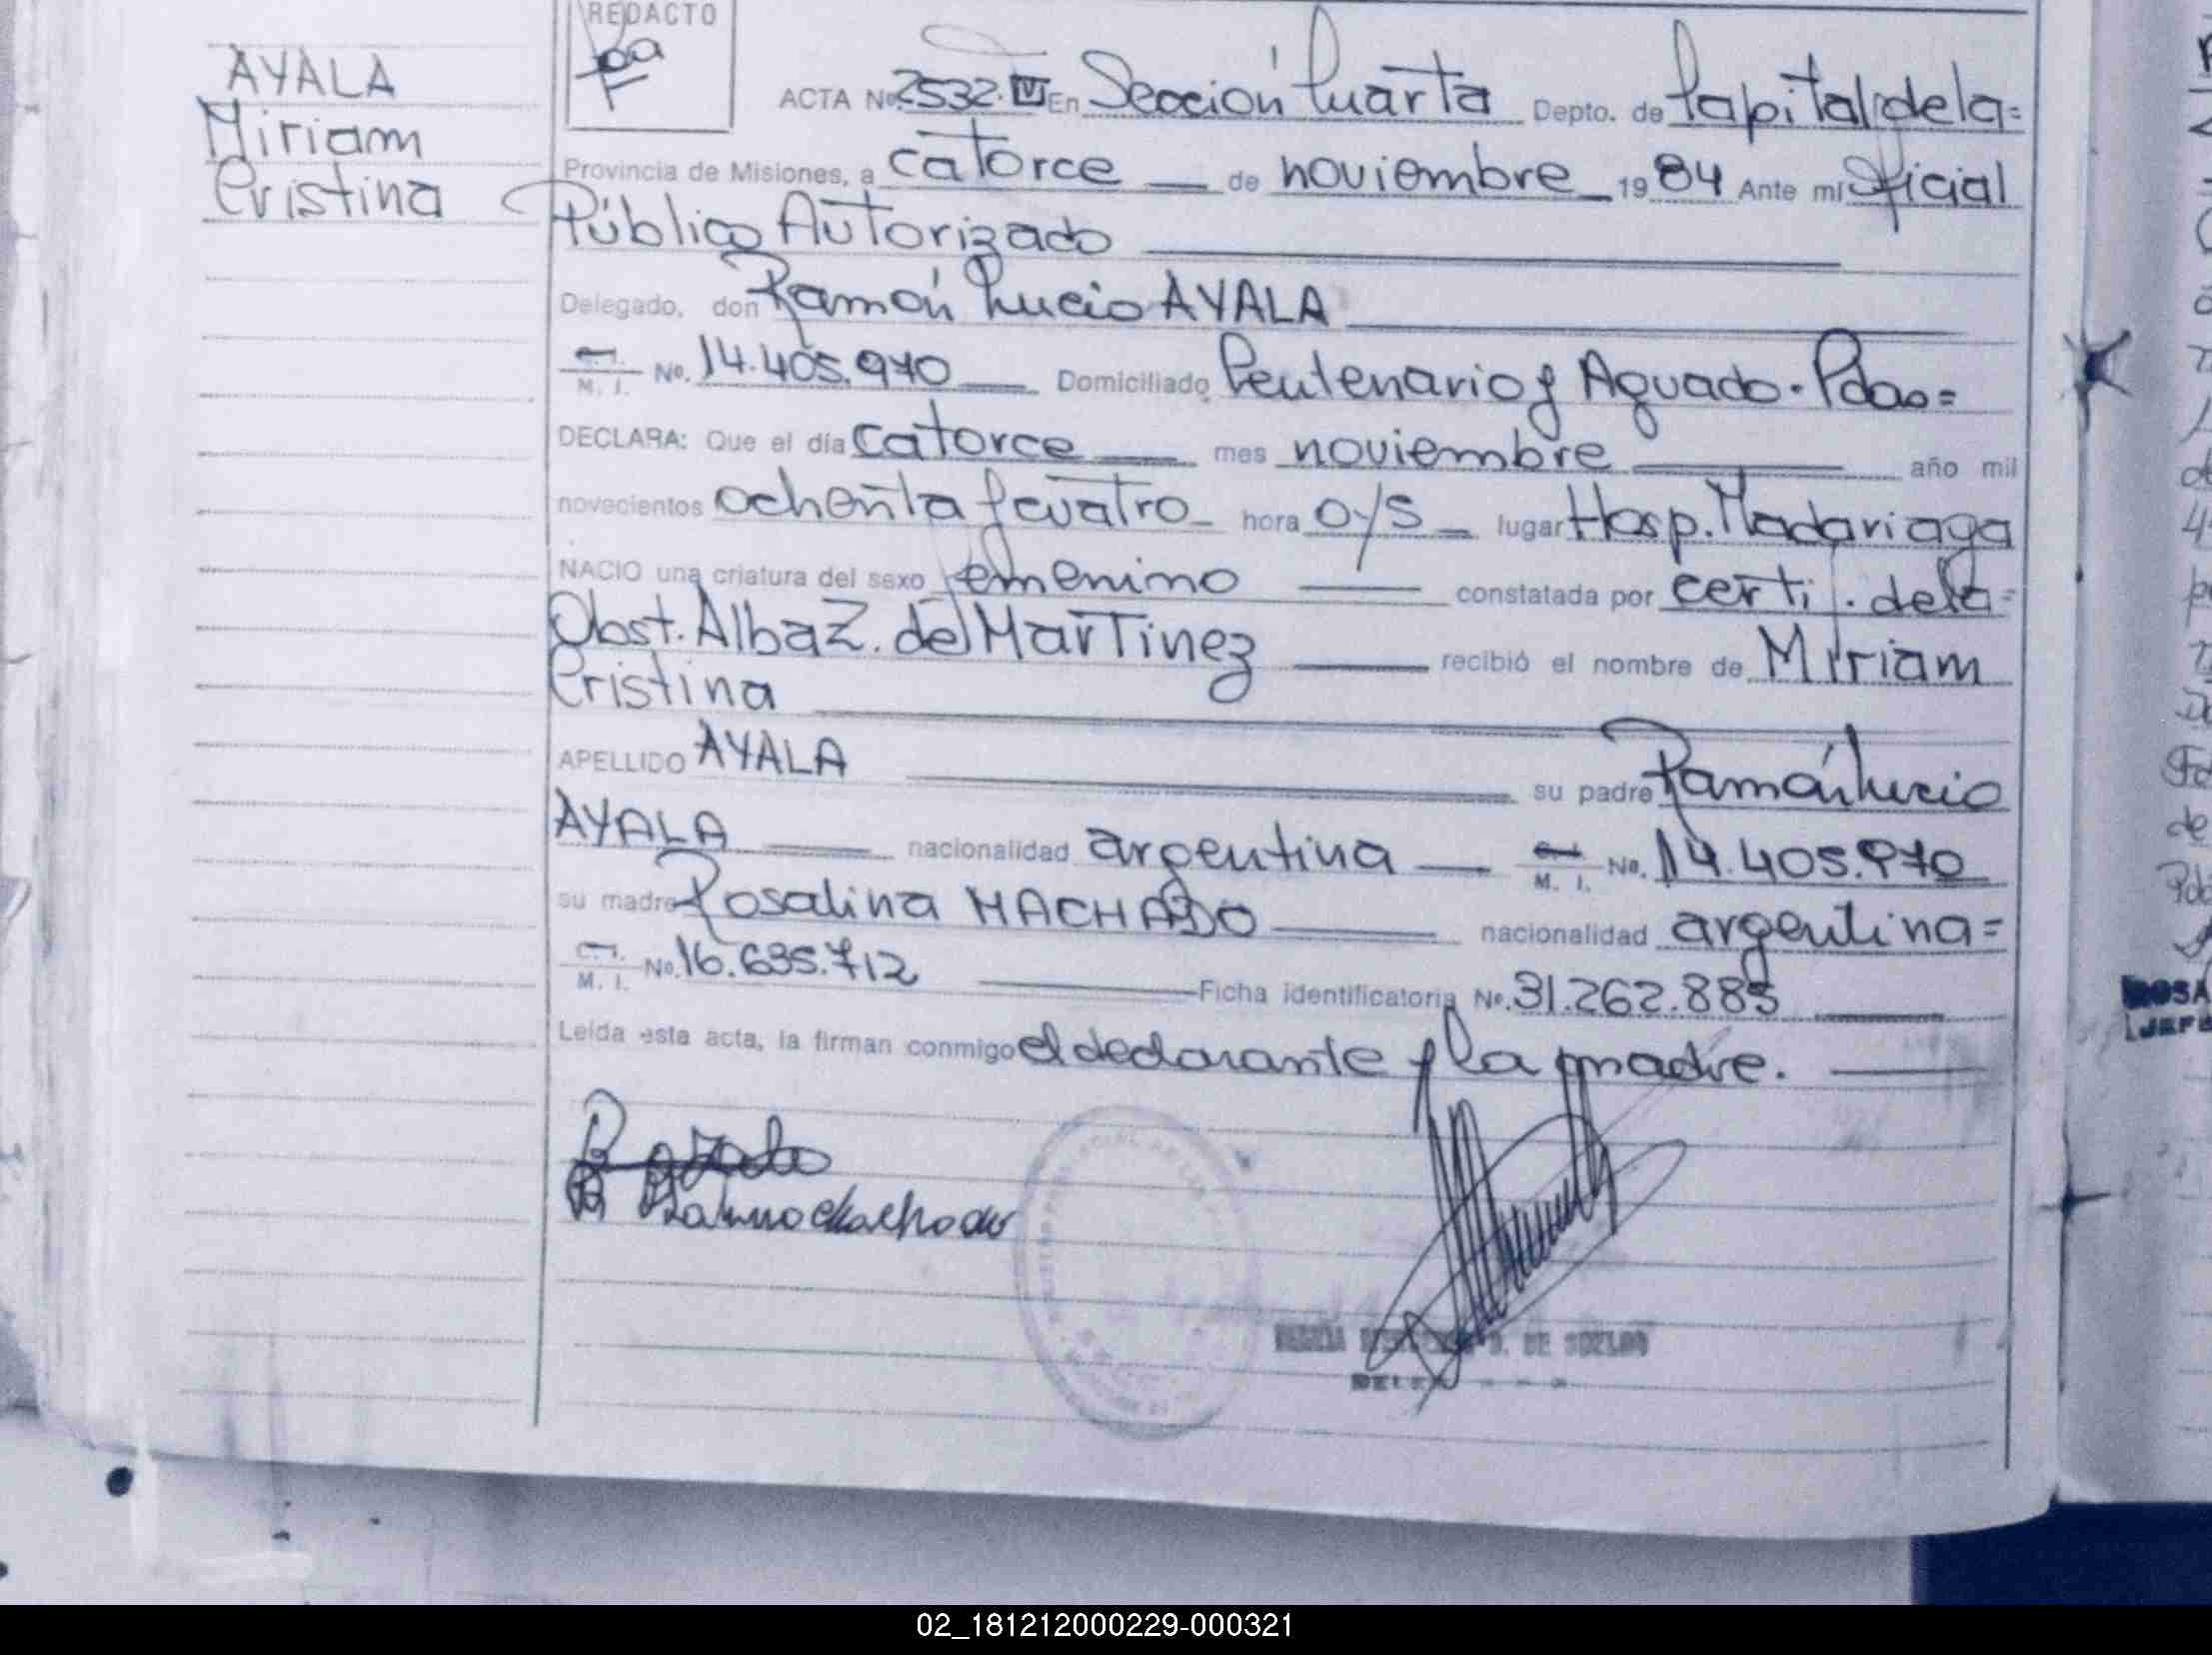 REDACTO
AYALA
Miriam
Cristina
ACTA No. 2532. IV En Sección Cuarta Depto. de Capital de la =
Provincia de Misiones, a catorce de noviembre 1984 Ante mi Oficial
Público Autorizado
Delegado, don Ramón Lucio AYALA
M. I. No. 14.405.970 Domiciliado Centenario y Aguado. Pdas =
DECLARA: Que el día catorce mes noviembre año mil
novecientos ochenta y cuatro hora 0y5 lugar Hosp. Madariaga
NACIO una criatura del sexo femenino constatada por certi. de la =
Obst. Alba Z. de Martinez recibió el nombre de Miriam
Cristina
APELLIDO AYALA su padre Ramón Lucio
AYALA nacionalidad argentina M. I. No. 14.405.970
su madre Rosalina MACHADO nacionalidad argentina =
C. I. M. I. No. 16.695.712 Ficha identificatoria No. 31.262.885
Leída esta acta, la firman conmigo el declarante y la madre.
DE SOZLOO
02_181212000229-000321